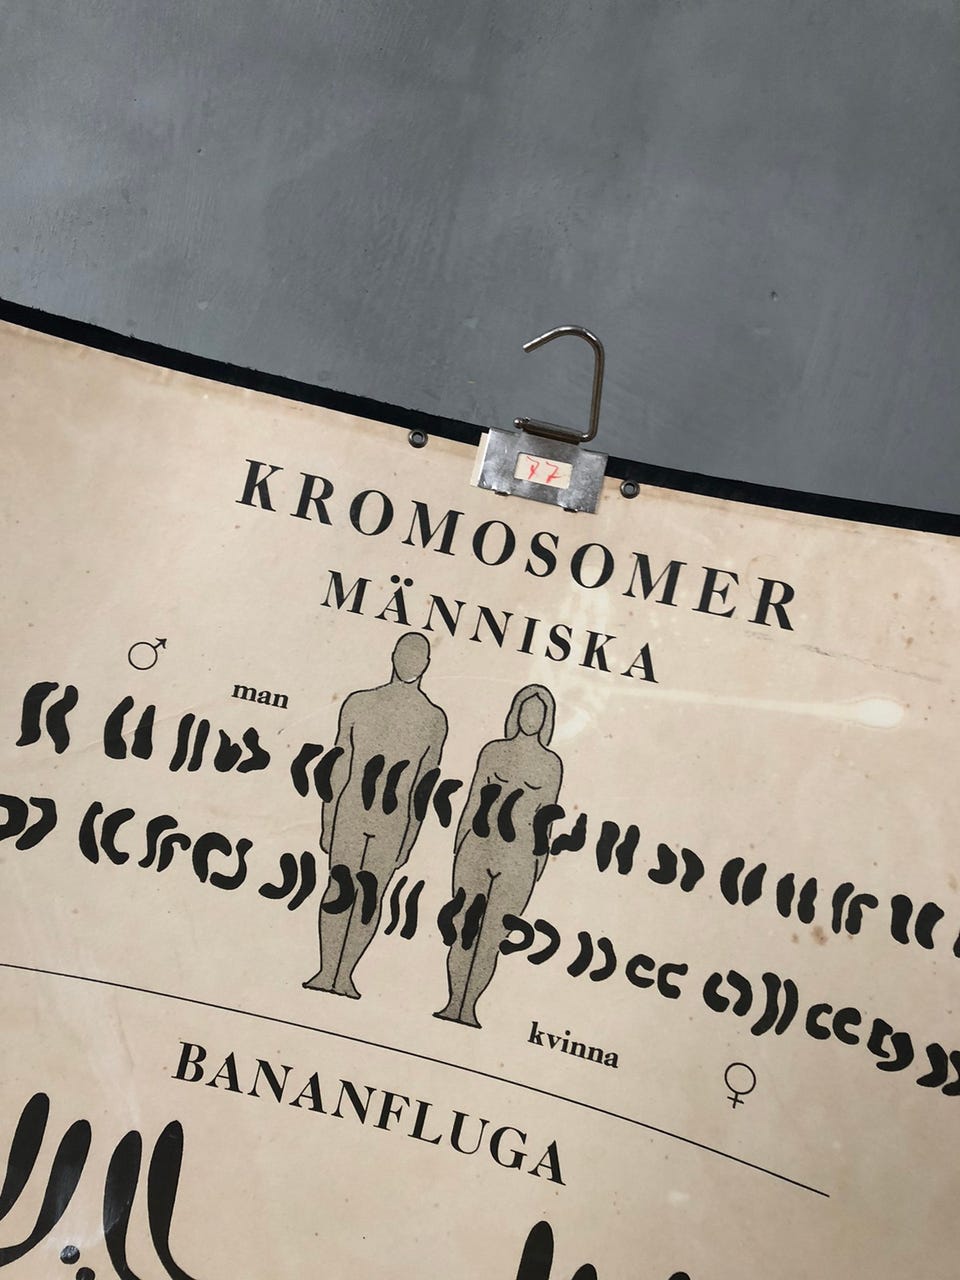 77
KROMOSOMER
MÄNNISKA
♂
man
kvinna
♀
BANANFLUGA